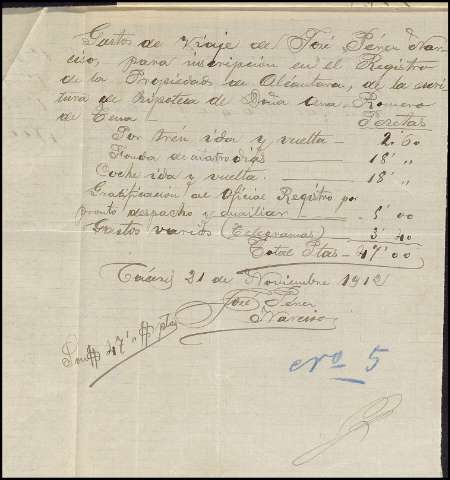 Gastos de Viaje de José Pérez Nar-
ciso, para inscripción en el Registro
de la Propiedad de Alcántara, de la escri
tura de hipoteca de Doña Ana Romero
de Tena - Pesetas
Por tren ida y vuelta - 2'60
Fonda de cuatro días - 18' "
Coche ida y vuelta - 18' "
Gratificación al Oficial Registro por
pronto despacho y auxiliar - 5'00
Gastos varios (Telegramas) 3'40
Total Ptas - 47'00
Cáceres 21 de Noviembre 1912
José Pérez
Narciso
47' ptas
Nº 5